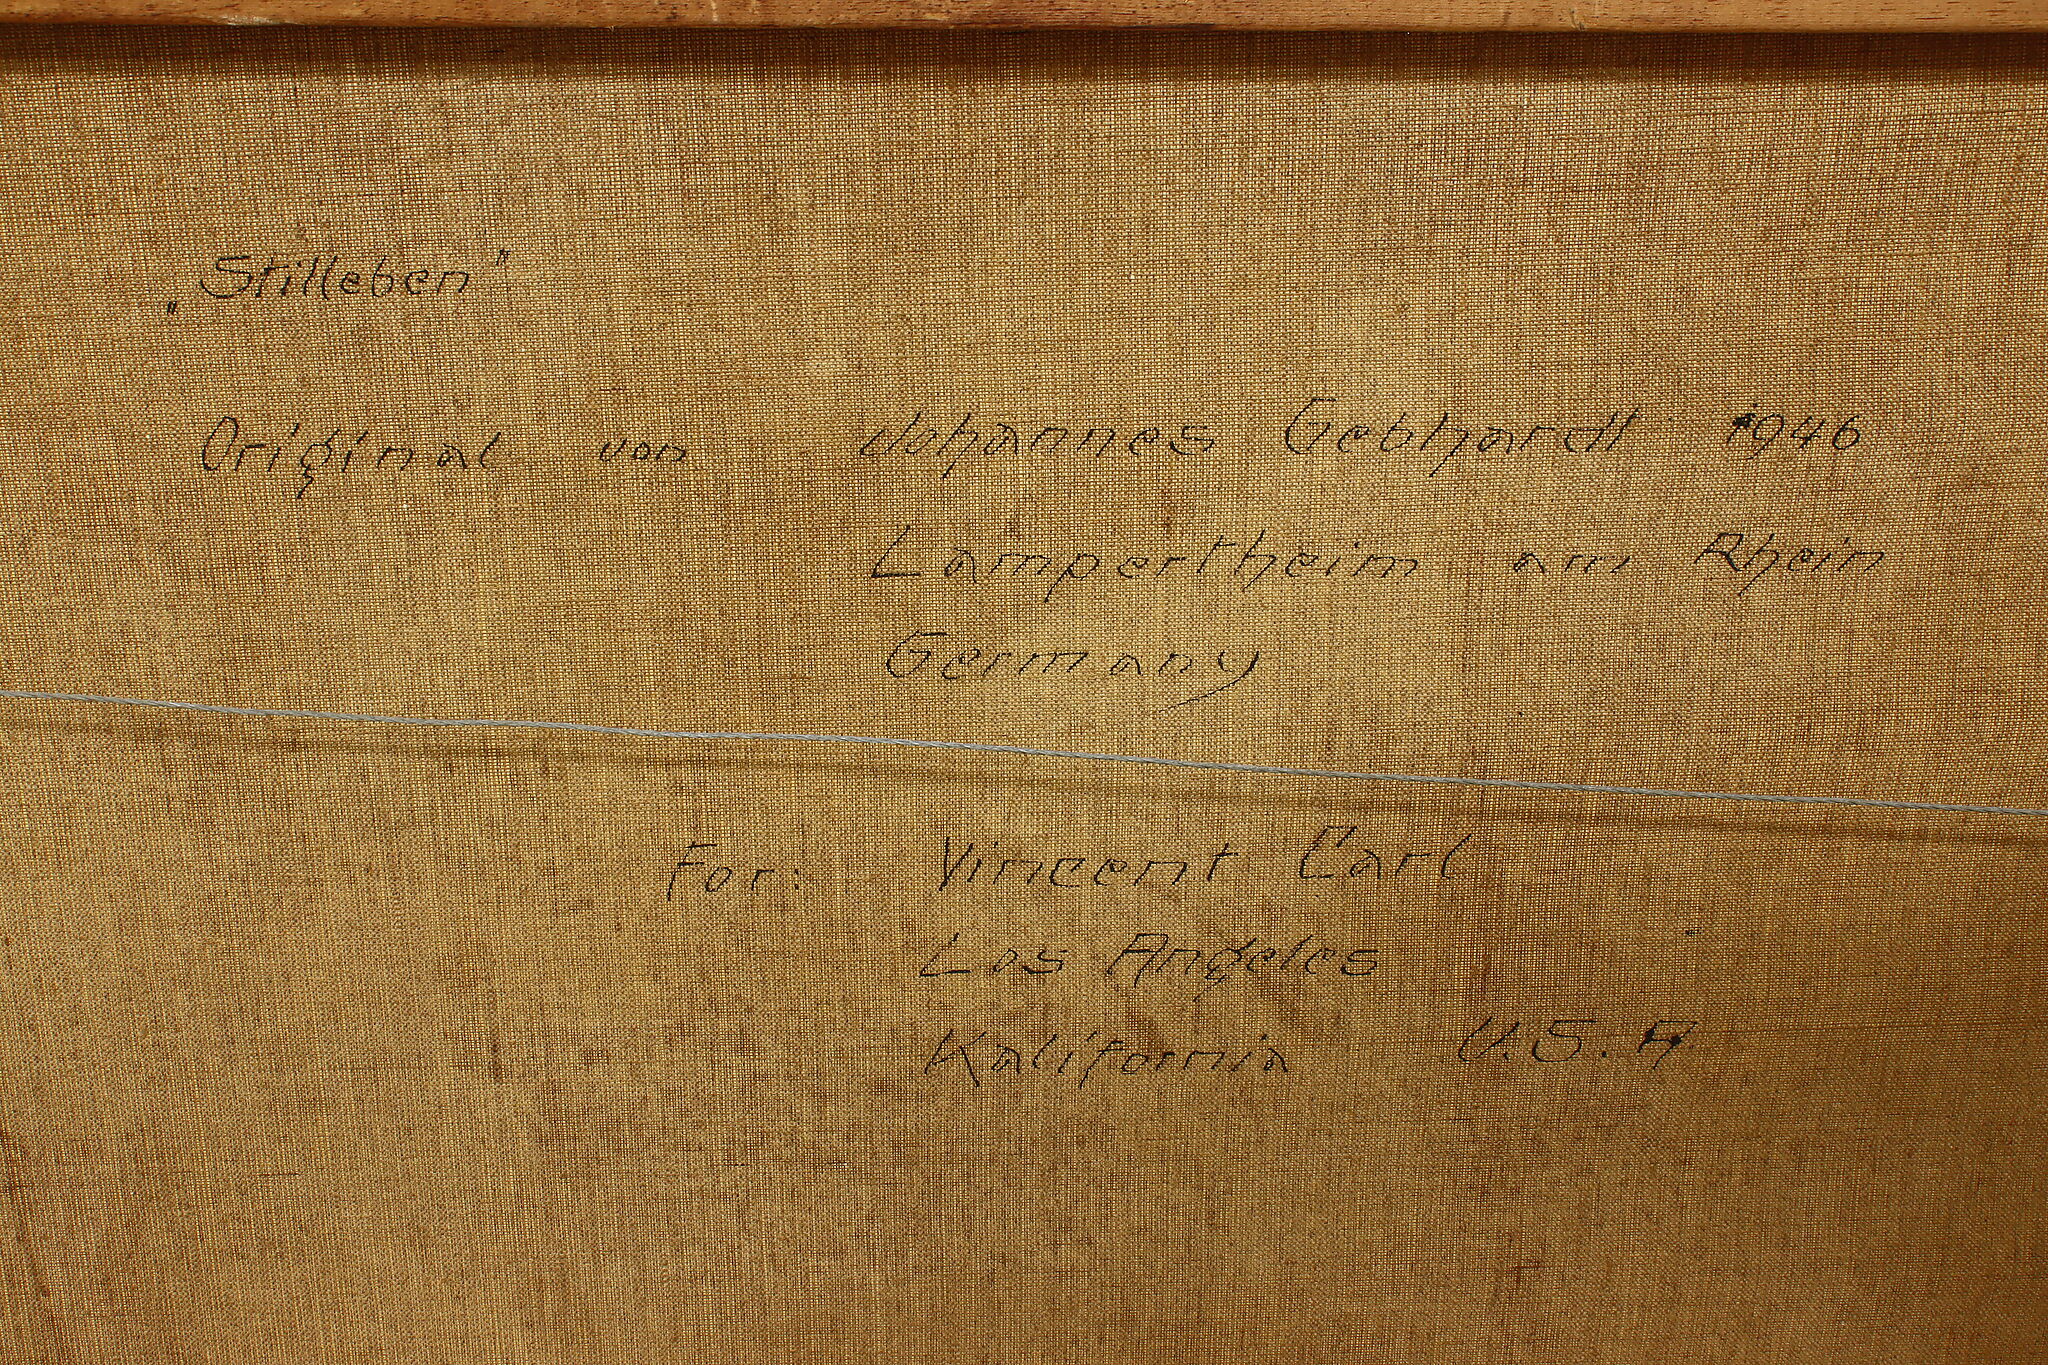 „Stilleben"
Original von Johannes Gebhardt 1946
Lampertheim am Rhein
Germany
For: Vincent Carl
Los Angeles
Kalifornia U.S.A.